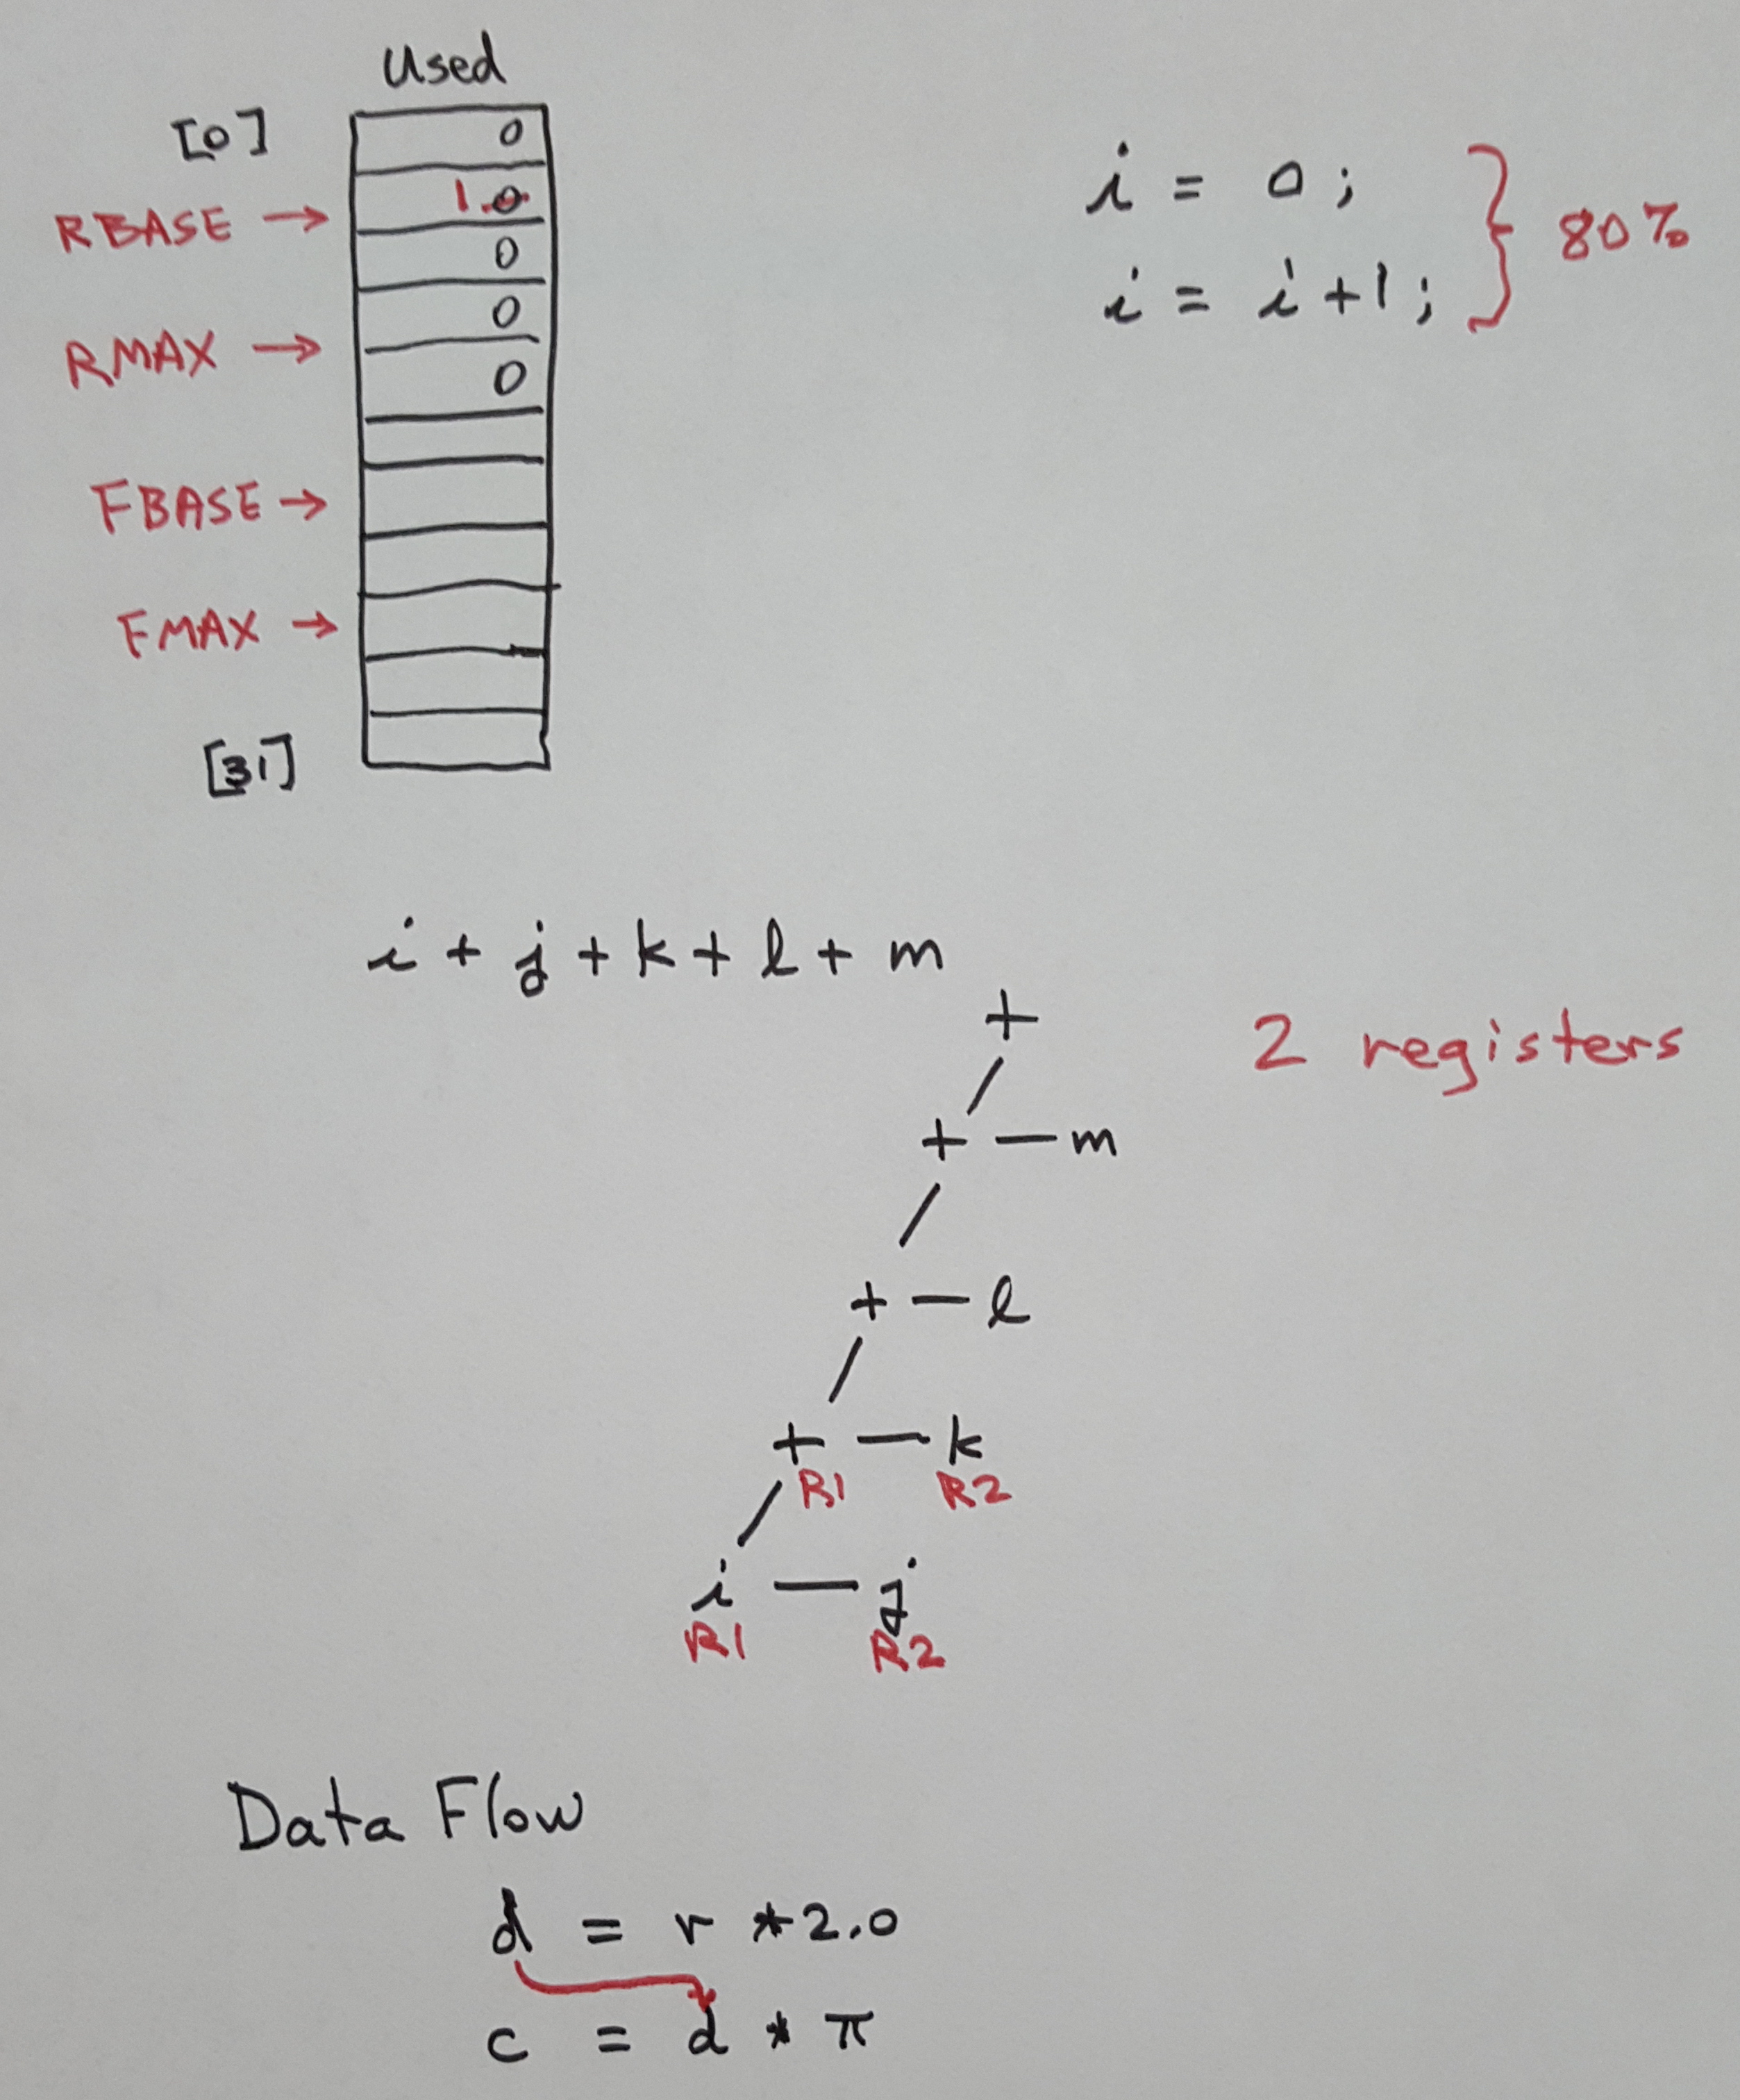 Used
[0] 0
RBASE → 1.0
0
0
RMAX →
0
FBASE →
FMAX →
[31]
i = 0;
i = i+1;
80%
i + j + k + l + m
+
2 registers
+ — m
+ — l
+ — k
R1 R2
i — j
R1 R2
Data Flow
d = r * 2.0
c = d * π